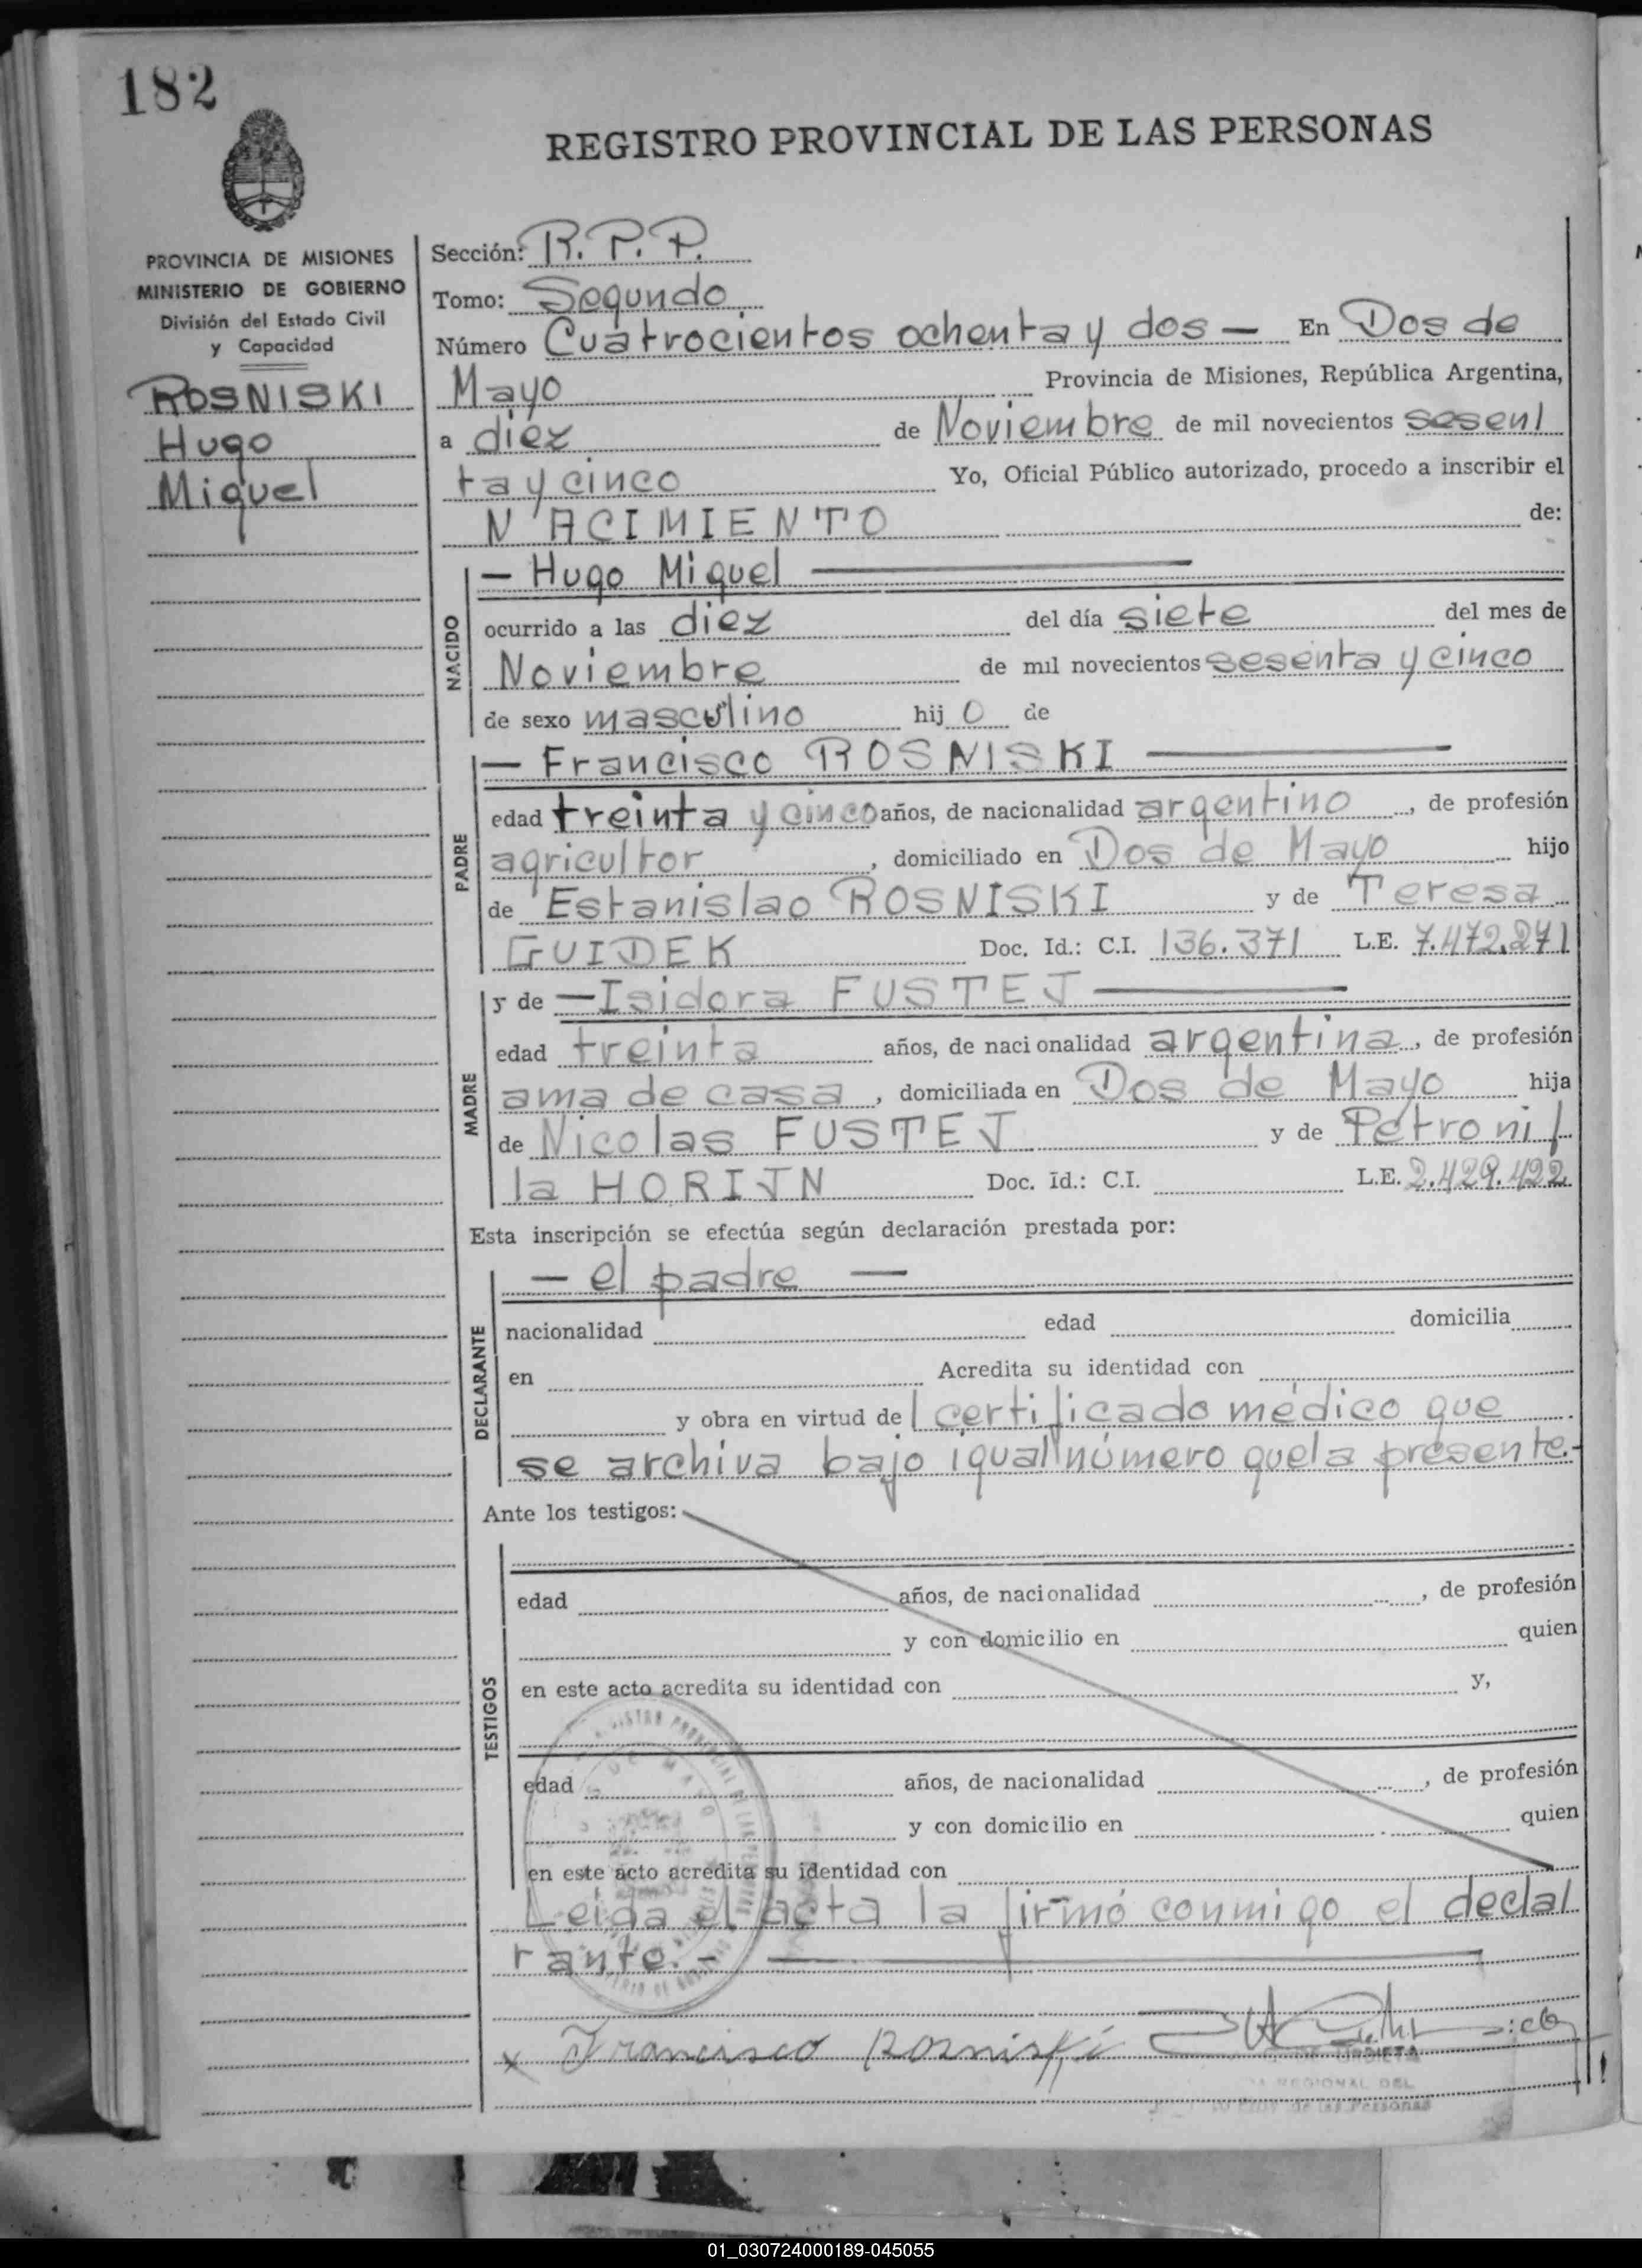 182
REGISTRO PROVINCIAL DE LAS PERSONAS
PROVINCIA DE MISIONES
MINISTERIO DE GOBIERNO
División del Estado Civil
y Capacidad
ROSNISKI
Hugo
Miguel
Sección: R.P.P.
Tomo: Segundo
Número Cuatrocientos ochenta y dos — En Dos de
Mayo Provincia de Misiones, República Argentina,
a diez de Noviembre de mil novecientos sesen/
ta y cinco Yo, Oficial Público autorizado, procedo a inscribir el
NACIMIENTO de:
NACIDO
— Hugo Miguel —
ocurrido a las diez del día siete del mes de
Noviembre de mil novecientos sesenta y cinco
de sexo masculino hij o de
PADRE
— Francisco ROSNISKI —
edad treinta y cinco años, de nacionalidad argentino, de profesión
agricultor, domiciliado en Dos de Mayo hijo
de Estanislao ROSNISKI y de Teresa
GUIDEK Doc. Id.: C.I. 136.371 L.E. 7.472.271
MADRE
y de — Isidora FUSTEJ —
edad treinta años, de nacionalidad argentina, de profesión
ama de casa, domiciliada en Dos de Mayo hija
de Nicolas FUSTEJ y de Petroni/
la HORIJN Doc. Id.: C.I. L.E. 2.429.422
Esta inscripción se efectúa según declaración prestada por:
DECLARANTE
— el padre —
nacionalidad edad domicilia
en Acredita su identidad con
y obra en virtud de l certificado médico que
se archiva bajo igual número que la presente.-
Ante los testigos:
TESTIGOS
edad años, de nacionalidad , de profesión
y con domicilio en quien
en este acto acredita su identidad con y,
edad años, de nacionalidad , de profesión
y con domicilio en quien
en este acto acredita su identidad con
Leida el acta la firmó conmigo el decla/
rante.-
x Francisco Rosniski
REGIONAL DEL
de las Personas
01_030724000189-045055